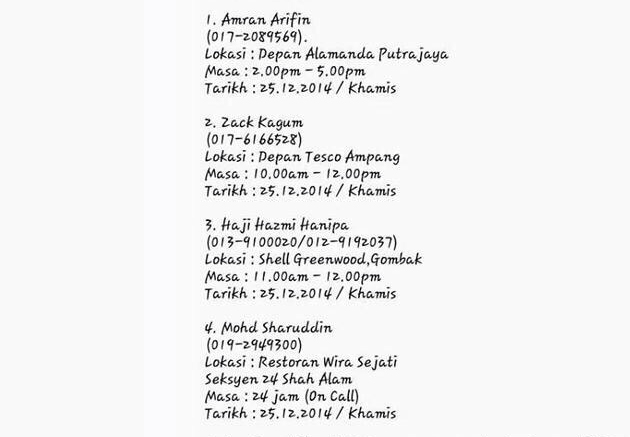 1. Amran Arifin
(017-2089569).
Lokasi : Depan Alamanda Putrajaya
Masa : 2.00pm - 5.00pm
Tarikh : 25.12.2014 / Khamis
2. Zack Kagum
(017-6166528)
Lokasi : Depan Tesco Ampang
Masa : 10.00am - 12.00pm
Tarikh : 25.12.2014 / Khamis
3. Haji Hazmi Hanipa
(013-9100020/012-9192037)
Lokasi : Shell Greenwood,Gombak
Masa : 11.00am - 12.00pm
Tarikh : 25.12.2014 / Khamis
4. Mohd Sharuddin
(019-2949300)
Lokasi : Restoran Wira Sejati
Seksyen 24 Shah Alam
Masa : 24 jam (On Call)
Tarikh : 25.12.2014 / Khamis